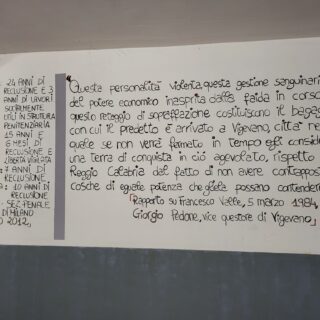 : 24 ANNI DI
RECLUSIONE E 3
ANNI DI LAVORI
SOCIALMENTE
UTILI IN STRUTTURA
PENITENZIARIA
15 ANNI E
6 MESI DI
RECLUSIONE E
LIBERTÀ VIGILATA
: 7 ANNI DI
RECLUSIONE
A : 10 ANNI DI
RECLUSIONE
- SEZ. PENALE
DI MILANO
O 2012,
"Questa personalità violenta, questa gestione sanguinari
del potere economico inasprita dalla faida in corso
questo retaggio di sopraffazione costituiscono il bagag
con cui il predetto è arrivato a Vigevano, città ne
quale se non verrà fermato in tempo egli conside
una terra di conquista in ciò agevolato, rispetto
Reggio Calabria dal fatto di non avere contrappos
cosche di eguale potenza che gliela possano contender
Rapporto su Francesco Valle, 5 marzo 1984,
Giorgio Pedone, vice questore di Vigevano